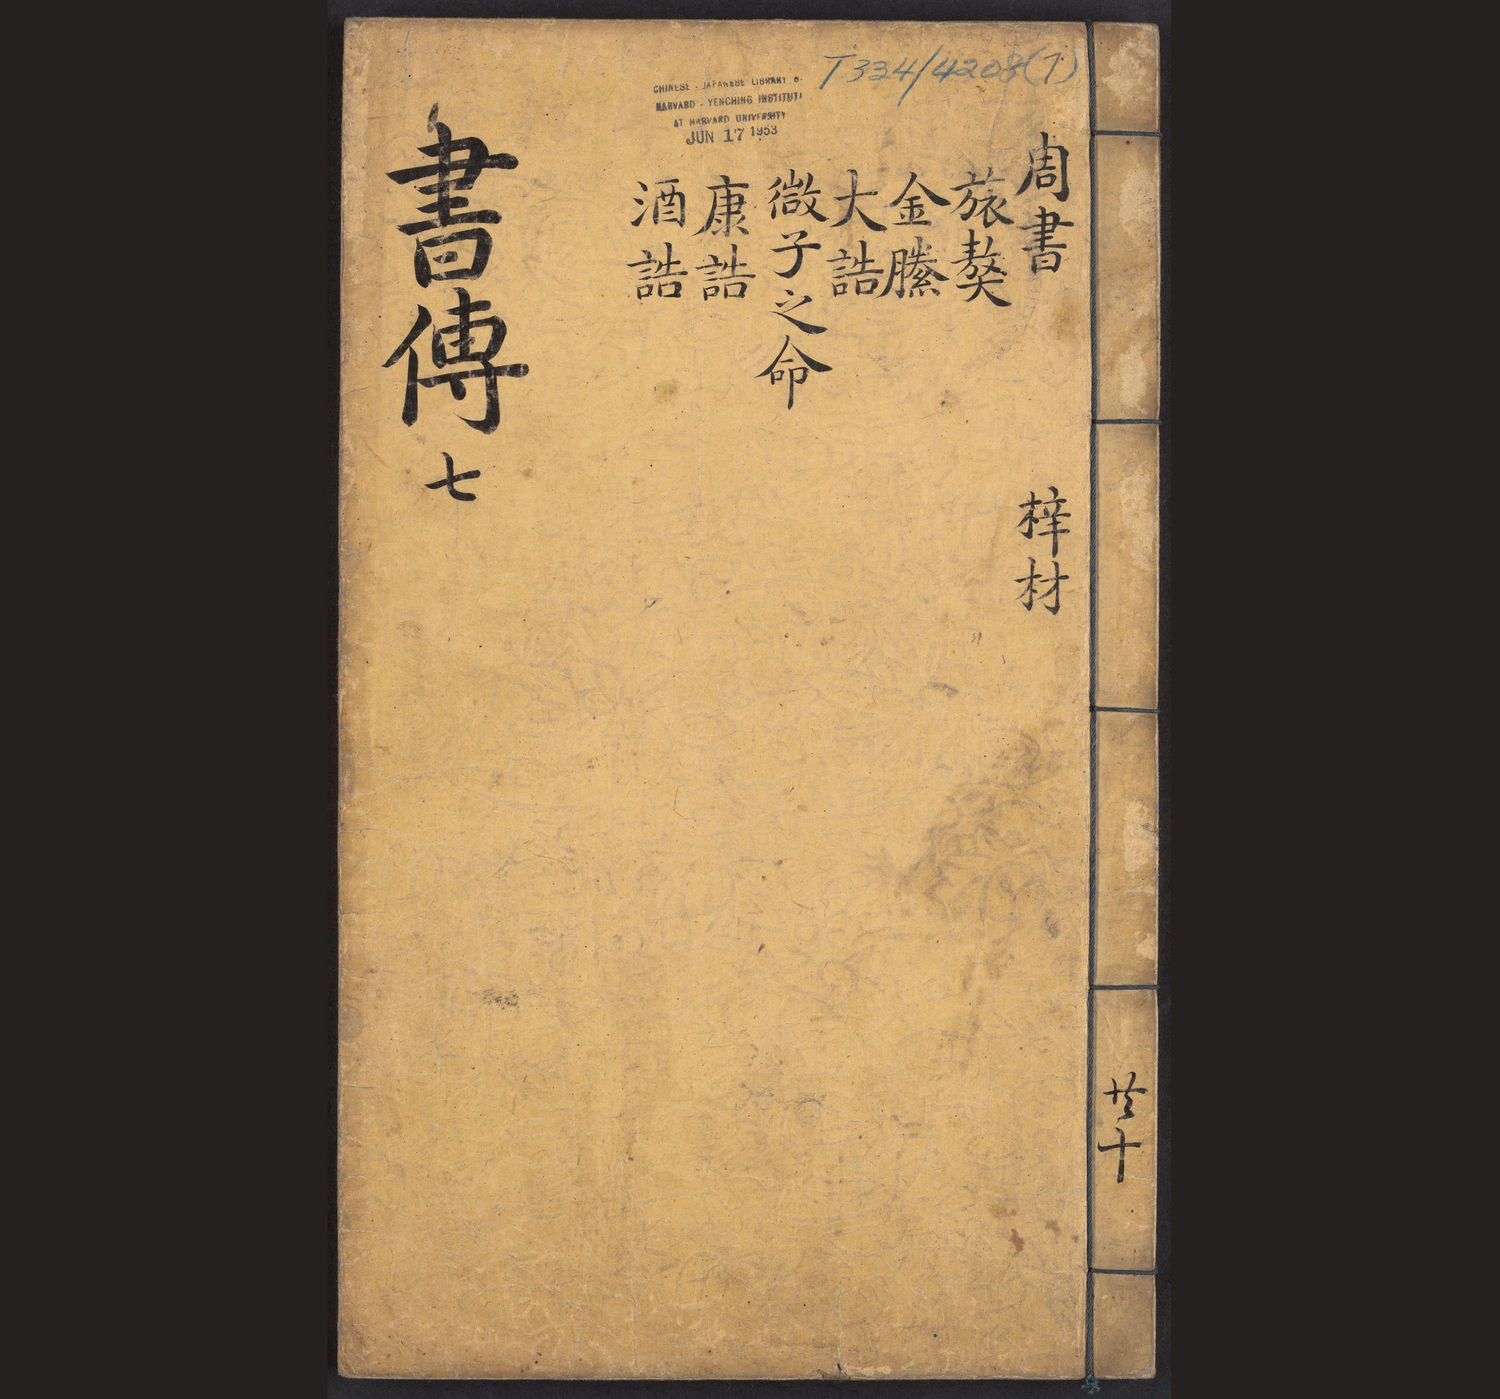 T334/4208(7)
CHINESE - JAPANESE LIBRARY
HARVARD - YENCHING INSTITUTE
AT HARVARD UNIVERSITY
JUN 17 1953
周書
梓材
旅獒
金縢
大誥
微子之命
康誥
酒誥
書傳
七
共
十